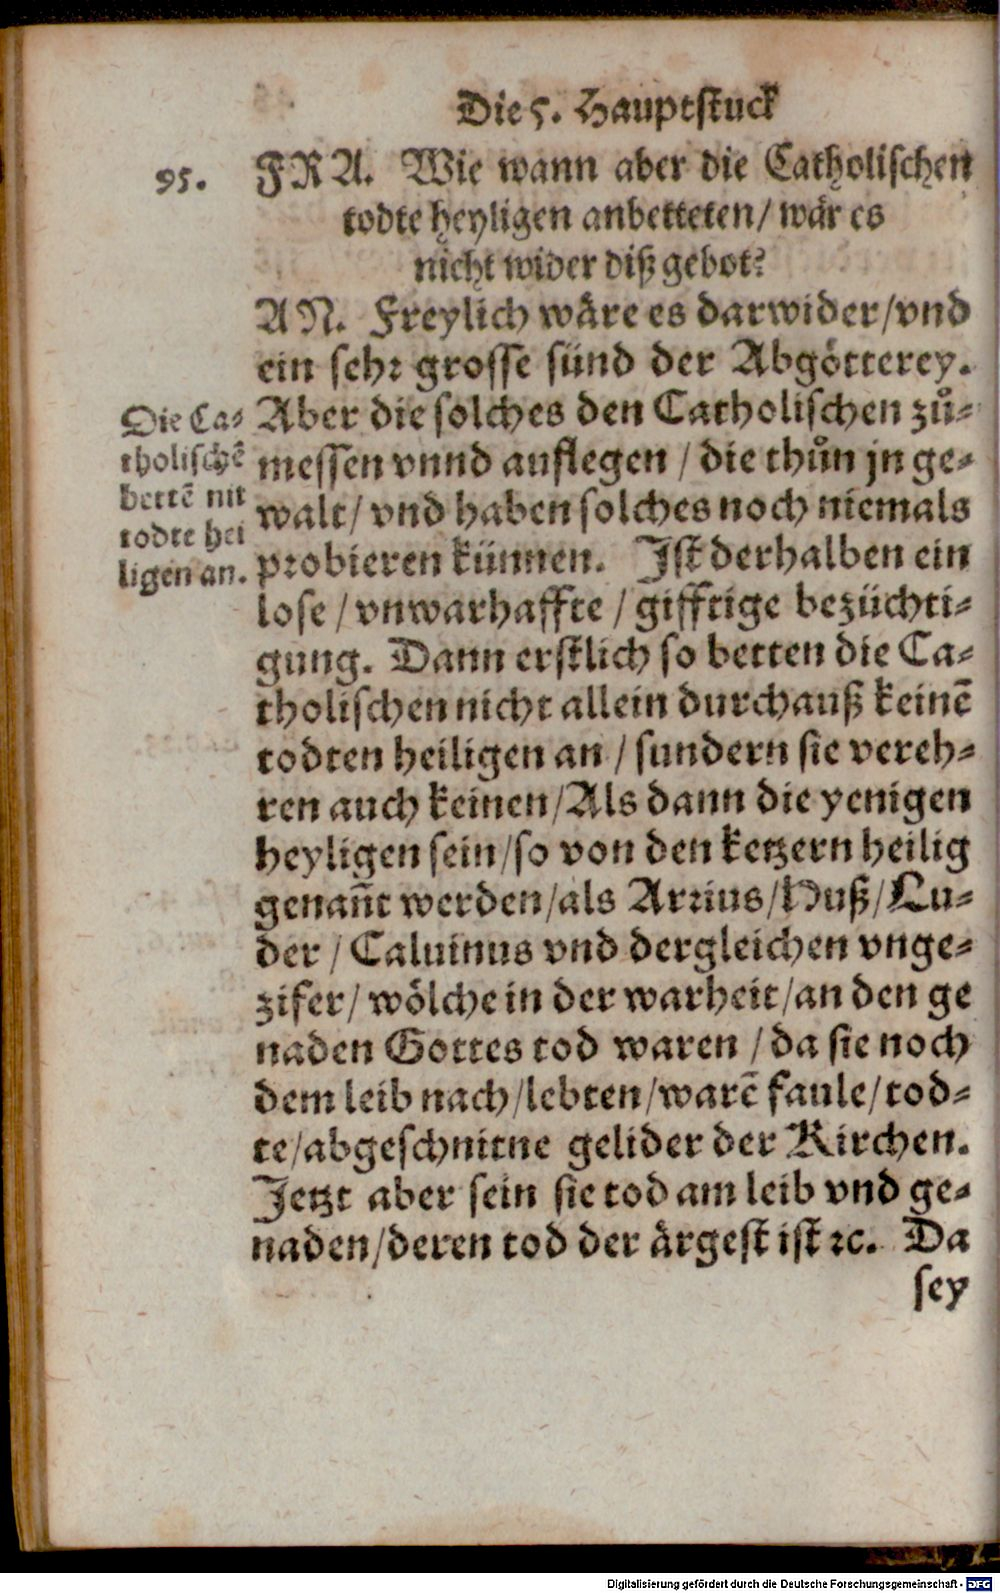 Die 5. Hauptstuck
95. FRA. Wie wann aber die Catholischen
todte heyligen anbetteten/ wär es
nicht wider diß gebot?
AN. Freylich wäre es darwider/vnd
ein sehr grosse sünd der Abgötterey.
Aber die solches den Catholischen zů-
messen vnnd auflegen / die thůn jn ge-
walt/ vnd haben solches noch niemals
probieren künnen. Ist derhalben ein
lose / vnwarhaffte / gifftige bezüchti-
gung. Dann erstlich so betten die Ca-
tholischen nicht allein durchauß keinē
todten heiligen an / sundern sie vereh-
ren auch keinen/Als dann die yenigen
heyligen sein/so von den ketzern heilig
genañt werden/als Arrius/Huß/Lu-
der / Caluinus vnd dergleichen vnge-
zifer/ wölche in der warheit/an den ge
naden Gottes tod waren / da sie noch
dem leib nach/lebten/warē faule/tod-
te/abgeschnitne gelider der Kirchen.
Jetzt aber sein sie tod am leib vnd ge-
naden/deren tod der ärgest ist ꝛc. Da
sey
Die Ca-
tholischē
bettē nit
todte hei
ligen an.
Digitalisierung gefördert durch die Deutsche Forschungsgemeinschaft - DFG